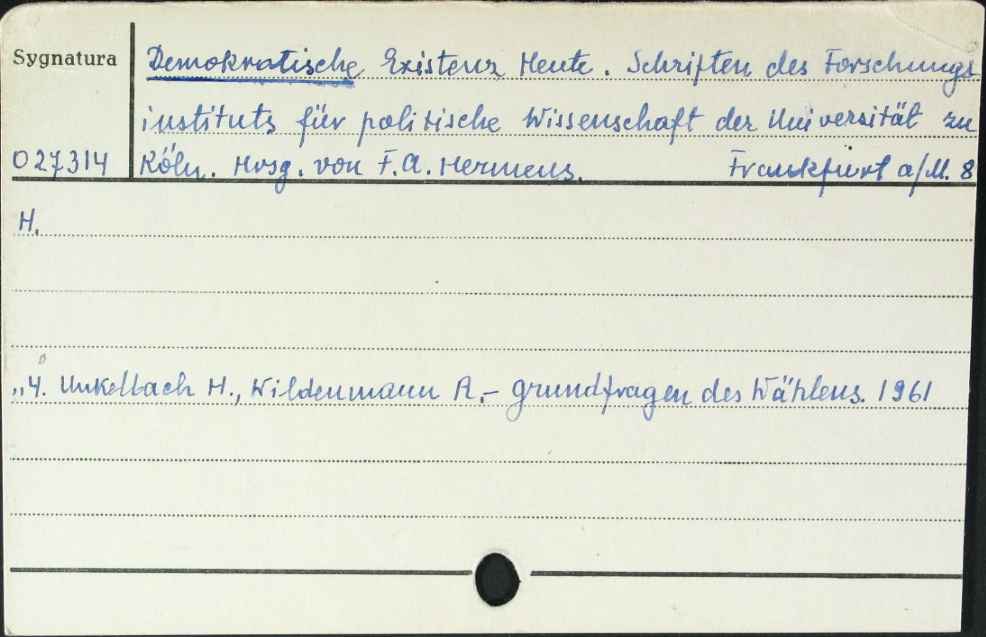 Sygnatura
Demokratische Existenz Heute. Schriften des Forschungs
instituts für politische Wissenschaft der Universität zu
027314 Köln. Hrsg. von F.A. Hermens. Frankfurt a/M. 8
H.
„4. Unkelbach H., Wildenmann R.- Grundfragen des Wählens. 1961